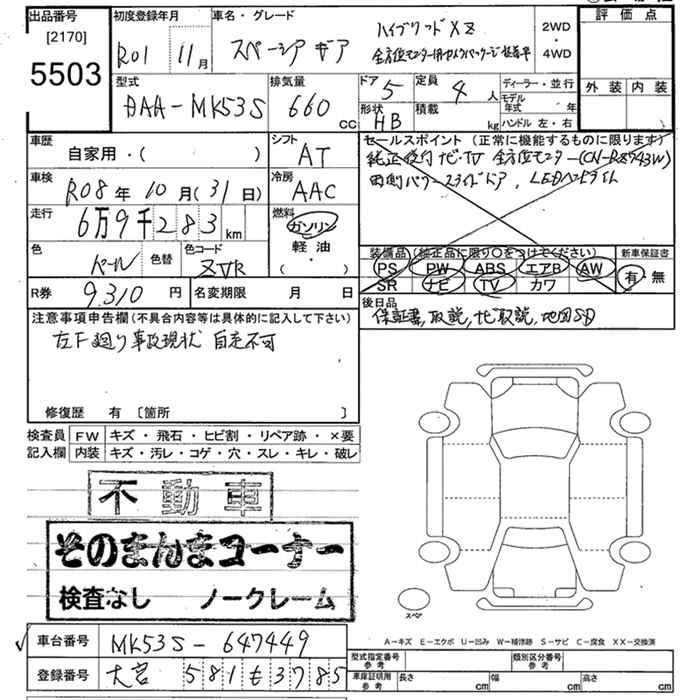 出品番号
[2170]
5503
初度登録年月
R01 年 11 月
車名・グレード
スペーシア ギア
ハイブリッドXZ
全方位モニター用カメラパッケージ装着車
2WD
・
4WD
評価点
外装 内装
型式
DAA-MK53S
排気量
660 cc
ドア 5
定員 4 人
形状 HB
積載 kg
ディーラー・並行
モデル年式 年
ハンドル 左・右
車歴
自家用・( )
シフト
AT
車検
R08年10月(31日)
冷房
AAC
走行
6万9千283km
燃料
ガソリン
軽油
・
( )
色
パール
色替
色コード
ZVR
R券 9,310 円
名変期限 月 日
セールスポイント(正常に機能するものに限ります)
純正後付ナビ・TV 全方位モニター(CN-RZ743W)
両側パワースライドドア、LEDヘッドライト
装備品(純正品に限り○をつけてください)
PS PW ABS エアB AW
SR ナビ TV カワ
新車保証書
有・無
後日品
保証書, 取説, ナビ取説, 地図SD
注意事項申告欄(不具合内容等は具体的に記入して下さい)
左F廻り事故現状 自走不可
修復歴 有 〔箇所 〕
検査員記入欄
FW キズ・飛石・ヒビ割・リペア跡・×要
内装 キズ・汚レ・コゲ・穴・スレ・キレ・破レ
不動車
そのまんまコーナー
検査なし ノークレーム
スペア
A-キズ E-エクボ U-凹み W-補修跡 S-サビ C-腐食 XX-交換済
車台番号 MK53S-647449
登録番号 大宮 581 も 3785
型式指定番号 参考
類別区分番号 参考
車庫証明用 参考
長さ cm 幅 cm 高さ cm